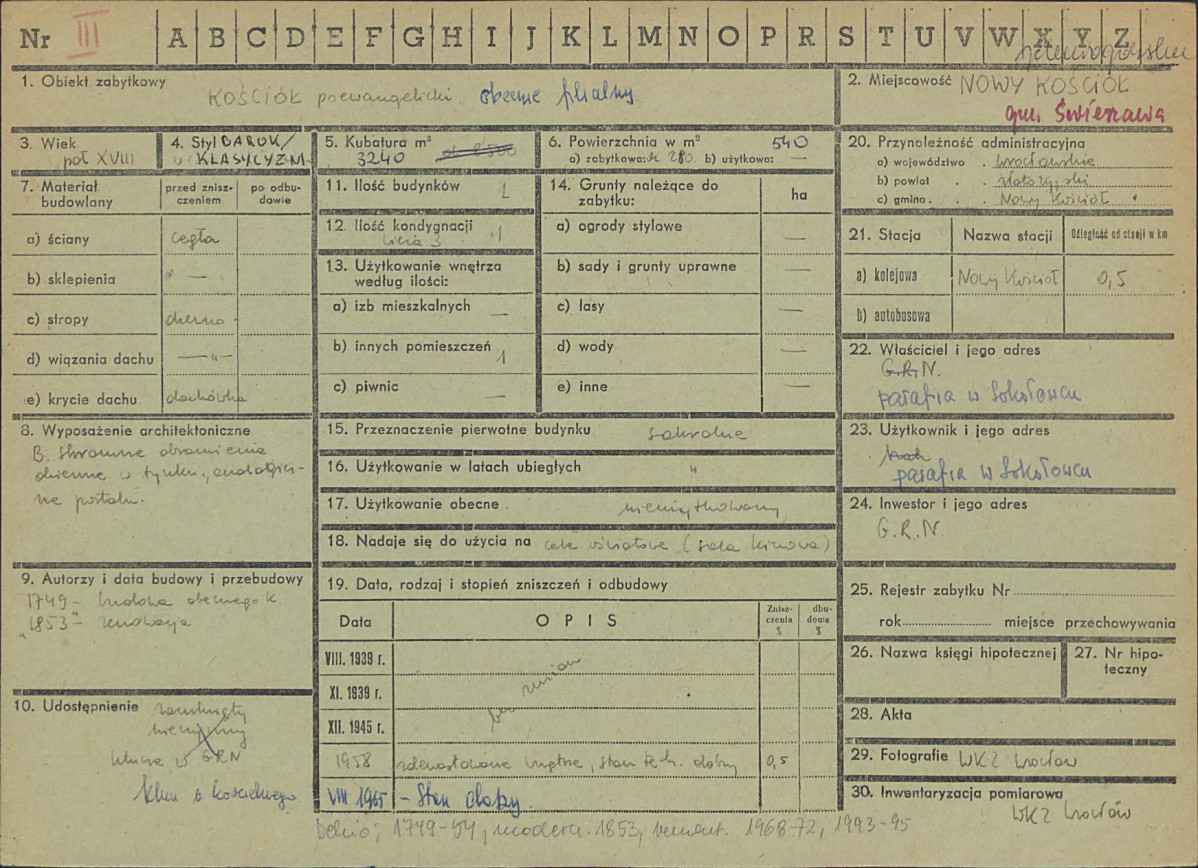 Nr III A B C D E F G H I J K L M N O P R S T U V W X Y Z
jeleniogórskie
1. Obiekt zabytkowy
KOŚCIÓŁ poewangelicki obecnie filialny
2. Miejscowość NOWY KOŚCIÓŁ
gm. Świerzawa
3. Wiek
poł XVIII
4. Styl BAROK/
KLASYCYZM
5. Kubatura m³
3240
6. Powierzchnia w m² 540
a) zabytkowa: 280 b) użytkowa: —
20. Przynależność administracyjna
a) województwo . wrocławskie
b) powiat . . złotoryjski
c) gmina . . Nowy Kościół
7. Materiał budowlany
przed znisz-
czeniem
po odbu-
dowie
a) ściany cegła
b) sklepienia —
c) stropy drewno
d) wiązania dachu —„—
e) krycie dachu dachówka
11. Ilość budynków 1
12. Ilość kondygnacji 1
13. Użytkowanie wnętrza
według ilości:
a) izb mieszkalnych —
b) innych pomieszczeń 1
c) piwnic —
14. Grunty należące do
zabytku: ha
a) ogrody stylowe —
b) sady i grunty uprawne —
c) lasy —
d) wody —
e) inne —
21. Stacja Nazwa stacji Odległość od stacji w km
a) kolejowa Nowy Kościół 0,5
b) autobusowa
22. Właściciel i jego adres
G.R.N.
parafia w Sokołowcu
23. Użytkownik i jego adres
parafia w Sokołowcu
24. Inwestor i jego adres
G.R.N.
8. Wyposażenie architektoniczne
B. skromne obramienia
okienne w tynku, analogicz-
ne portalu.
15. Przeznaczenie pierwotne budynku sakralne
16. Użytkowanie w latach ubiegłych "
17. Użytkowanie obecne . nieużytkowany
18. Nadaje się do użycia na cele oświatowe (sala kinowa)
9. Autorzy i data budowy i przebudowy
1749 - budowa obecnego k.
"1853" - renowacja
19. Data, rodzaj i stopień zniszczeń i odbudowy
Data OPIS Znisz-
czenia
% dbu-
dowa
%
VIII. 1939 r.
XI. 1939 r. bez zmian
XII. 1945 r.
1958 zdewastowane wnętrze, stan tech. dobry 0,5
VIII 1965 - Stan dobry.
10. Udostępnienie zamknięty
nieczynny
klucz w GRN
klucz u kościelnego
25. Rejestr zabytku Nr
rok miejsce przechowywania
26. Nazwa księgi hipotecznej
27. Nr hipo-
teczny
28. Akta
29. Fotografie WKZ Wrocław
30. Inwentaryzacja pomiarowa
WKZ Wrocław
Dehio; 1749-54, modern. 1853, remont. 1968-72, 1993-95